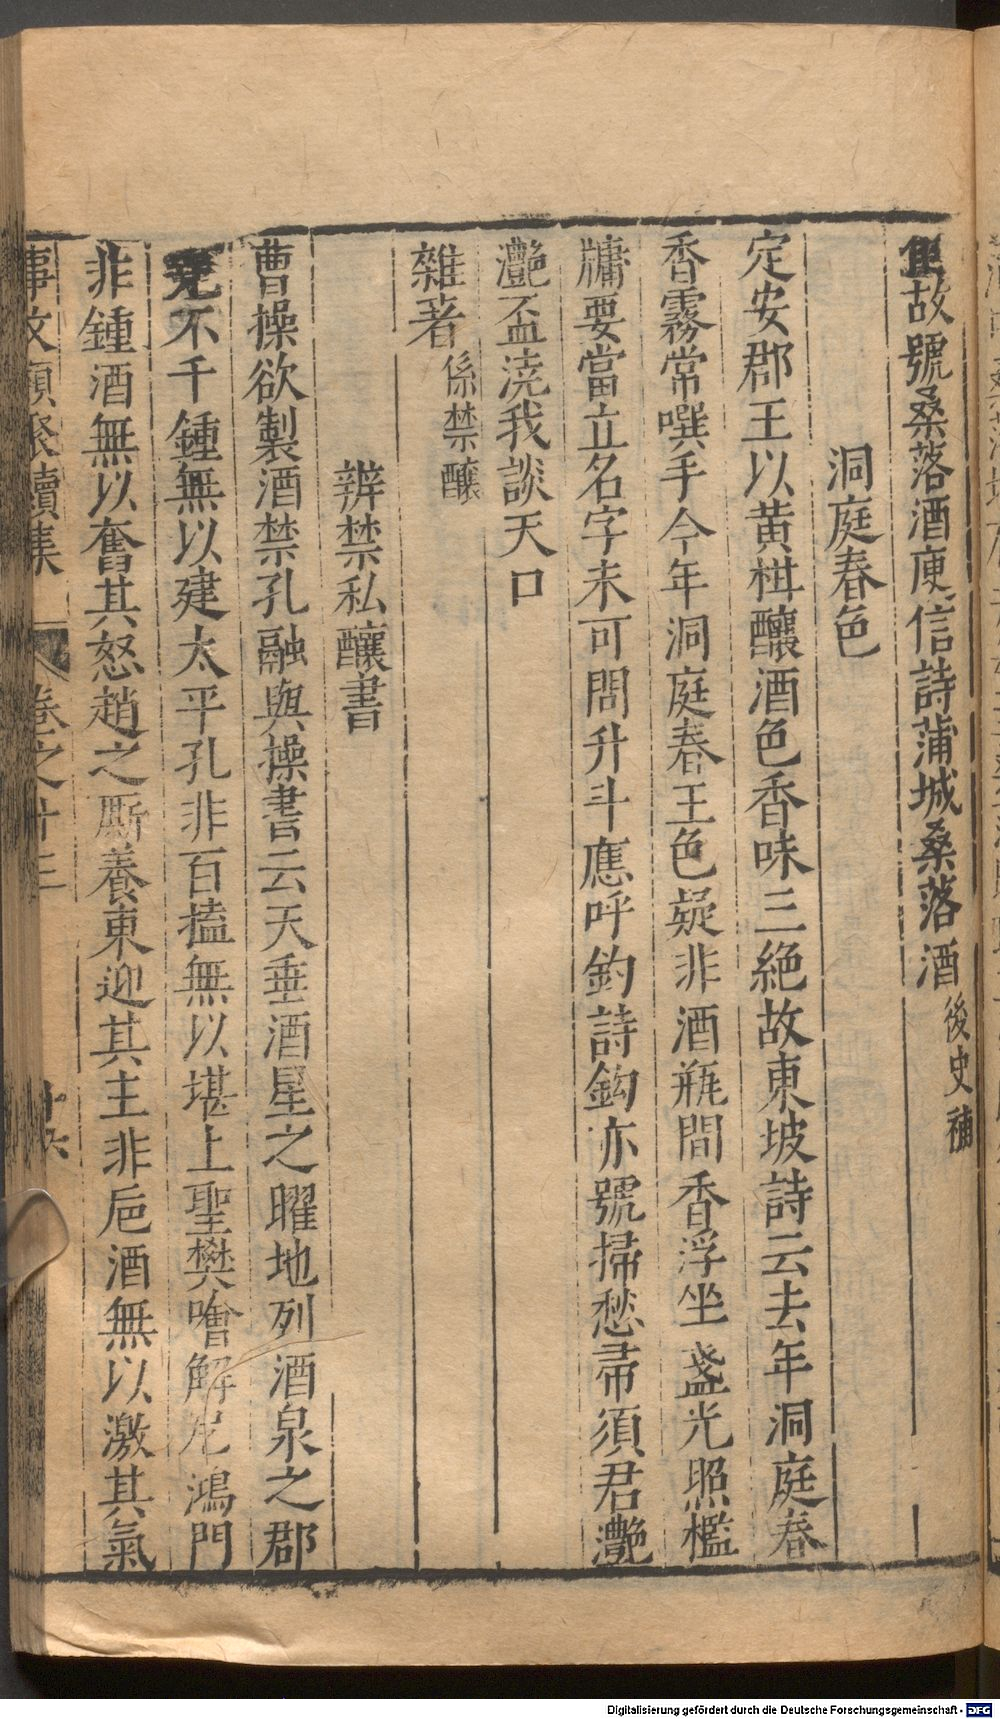 隹故號桑落酒庾信詩蒲城桑落酒後史補
洞庭春色
定安郡王以黄柑釀酒色香味三絶故東坡詩云去年洞庭春
香霧常噀手今年洞庭春玉色疑非酒瓶間香浮坐盞光照檻
牖要當立名字未可問升斗應呼釣詩鈎亦號掃愁帚須君灩
灩盃澆我談天口
雜著係禁釀
辨禁私釀書
曹操欲製酒禁孔融與操書云天垂酒星之曜地列酒泉之郡
堯不千鍾無以建太平孔非百榼無以堪上聖樊噲解戹鴻門
非鍾酒無以奮其怒趙之厮養東迎其主非巵酒無以激其氣
事文類聚續集 卷之十三
Digitalisierung gefördert durch die Deutsche Forschungsgemeinschaft - DFG